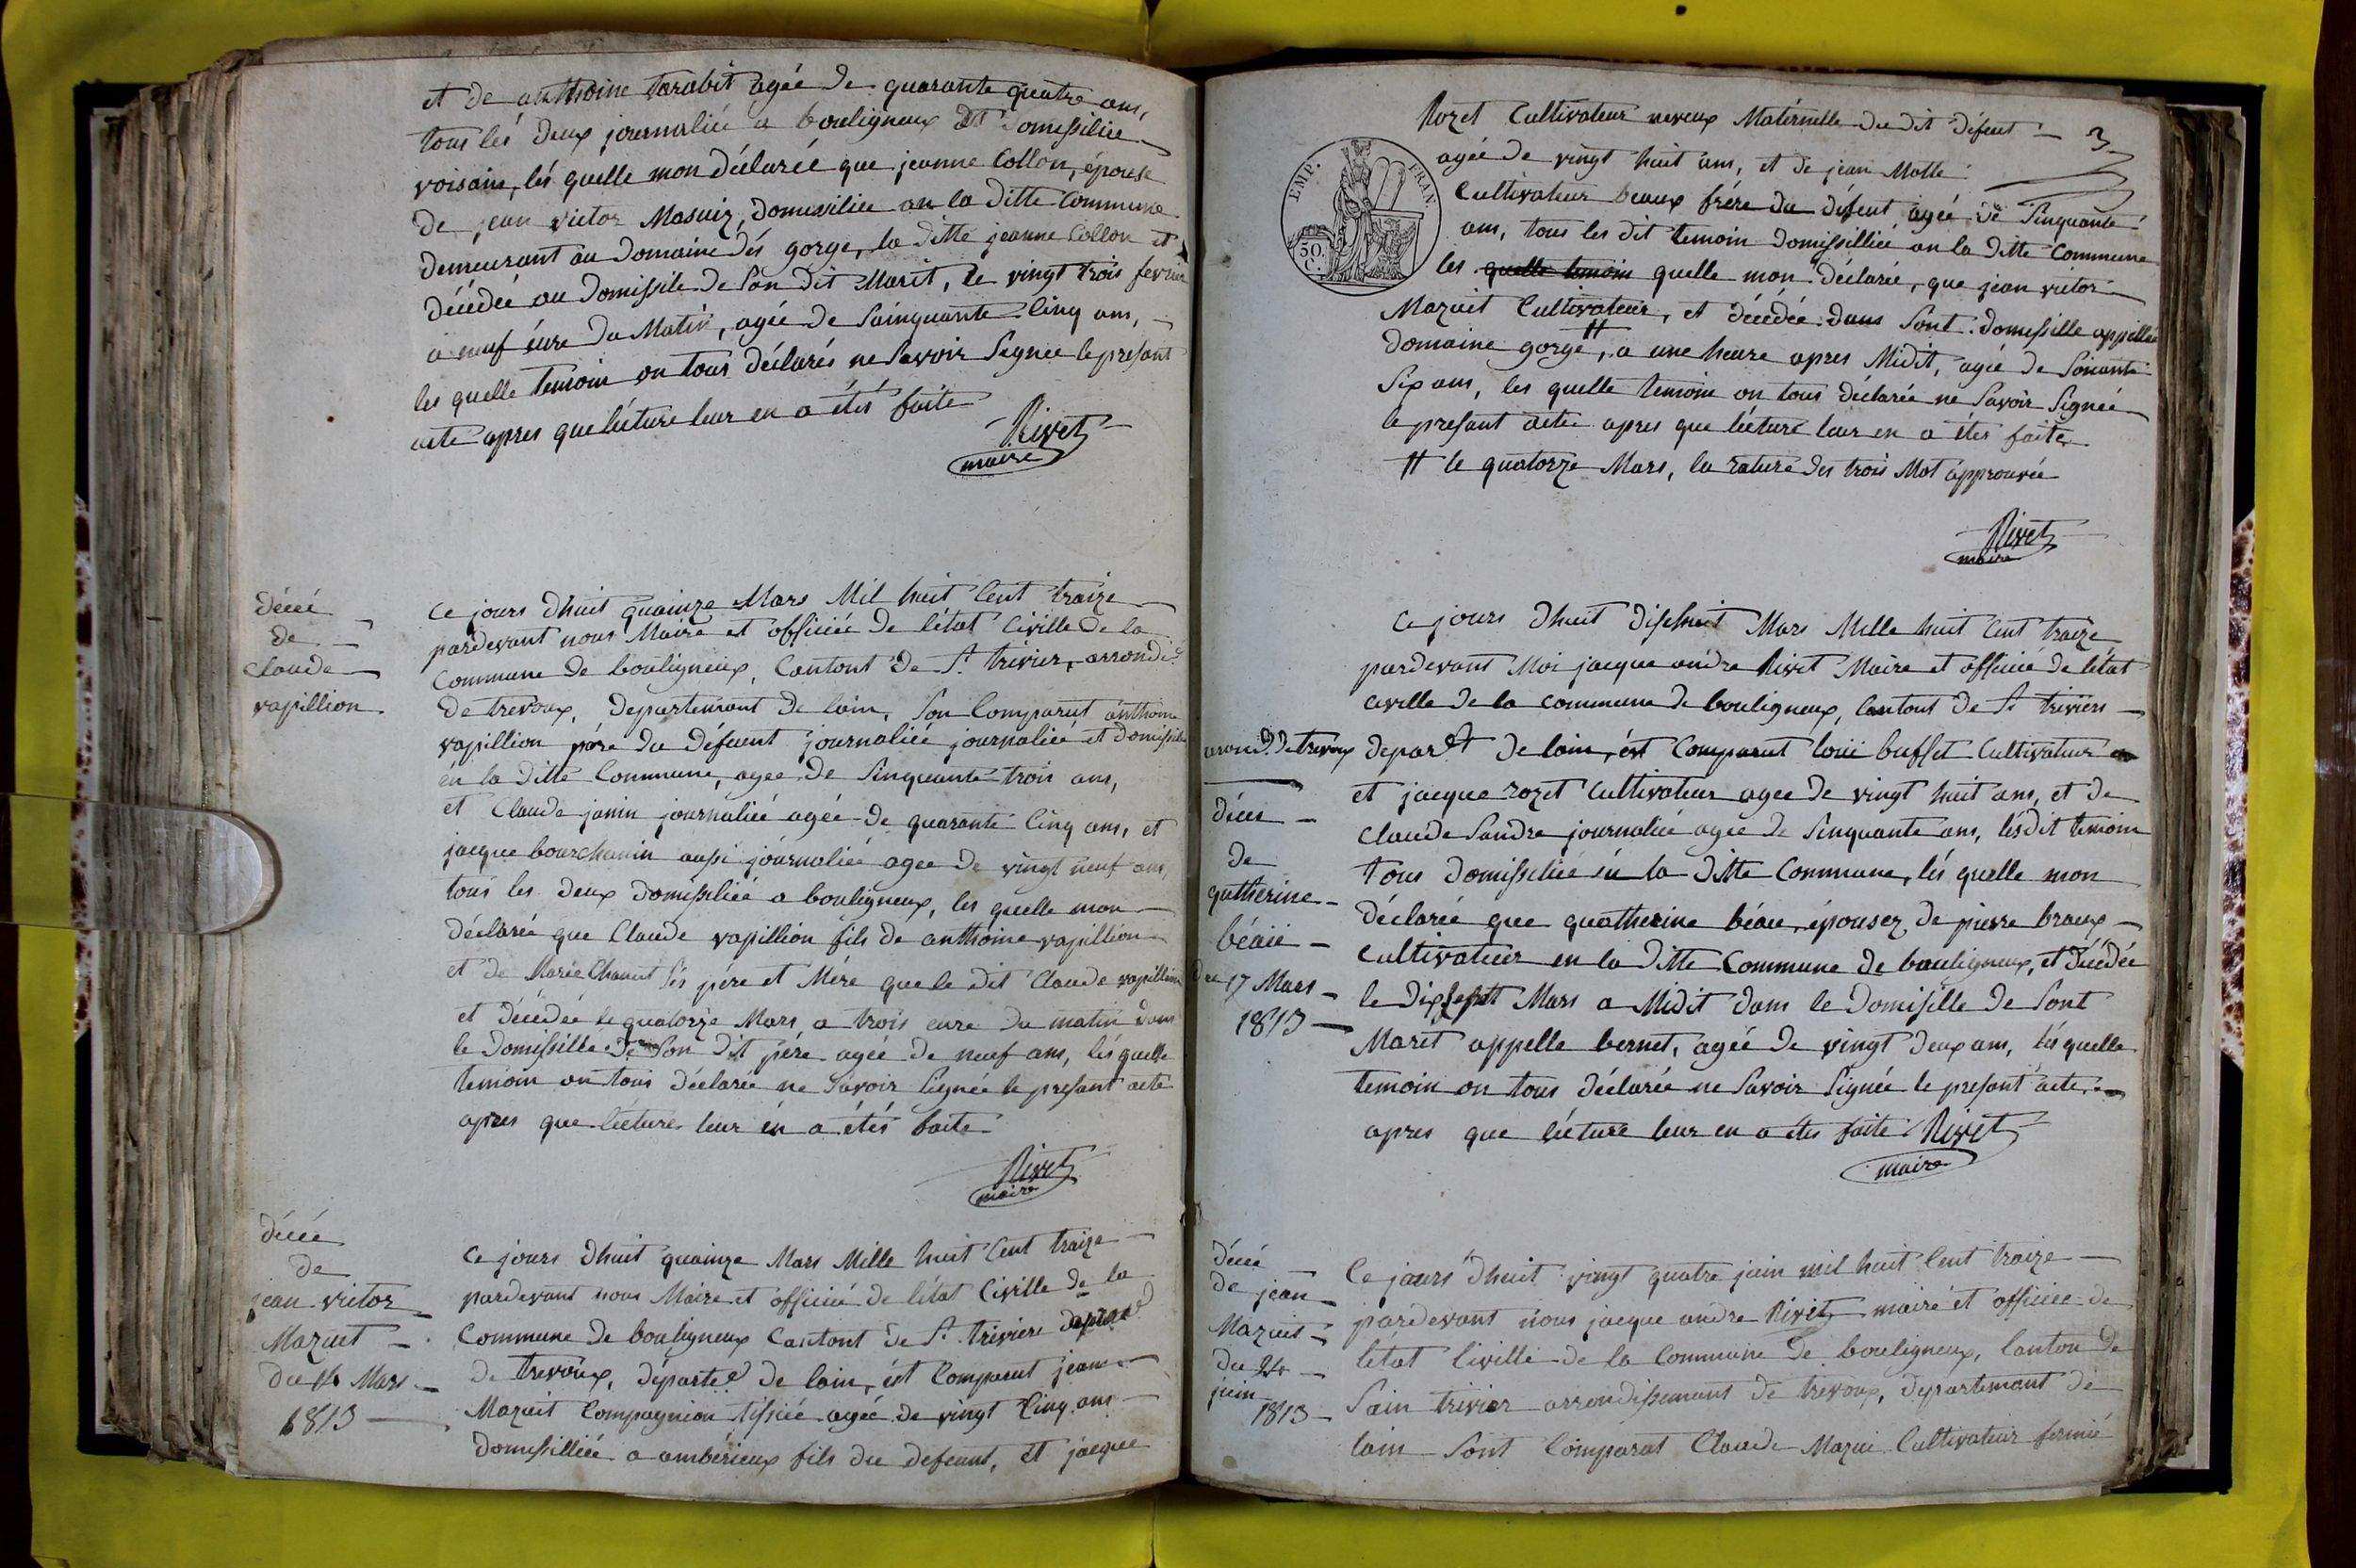 et de anthoine tarabit agée de quarante quatre ans,
tous lés deux journaliée a bouligneux et domissiliée
voisain, lés quelle mon déclarée que jeanne Collon, épouse
de jean victor Masuiz, domissiliée an la ditte Commune
demeurant au domaine dés gorge, la ditte jeanne Collon et
décédée au domissile de Son dit Marit, le vingt trois fevrier
a neuf éure du Matin, agée de Sainquante Cinq ans,
les quelle temoin on tous déclarés ne Savoir Signée le presant
acte apres que lécture leur en a étés faite
Rivet
maire
décé
de
Claude
vapillion
Ce jours dhuit quainze Mars Mil huit Cent traize
pardevant nous Maire et officiée de létat Civille de la
Commune de bouligneux, Cantont de St. trivier, arrondit
de trevoux, departemant de lain, Son Comparut anthoine
vapillion pére du défuent journaliée journaliée et domissilié
én la ditte Commune, agée de Sinquante trois ans,
et Claude janin journaliée agée de quarante Cinq ans, et
jacque bourchanin aussi journaliée agée de vingt neuf ans,
tous les deux domissiliée a bouligneux, les quelle mon
déclarée que Claude vapillion fils de anthoine vapillion
et de Marie Chanut Sés pére et Mére que le dit Claude vapillion
et décédée le quatorze Mars, a trois eure du matin dans
le domissille de Son dit pére agée de neuf ans, lés quelle
temoin on tous déclarée ne Savoir Signée le presant acte
apres que lécture leur én a étés faite
Rivet
maire
décée
de
jean victor
Mazuit
du 14 Mars
1813
Ce jours dhuit quainze Mars Mille huit Cent traize
pardevant nous Maire et officiée de létat Civille de la
Commune de bouligneux Cantont de St. triviere
de trevoux, départed de lain, ést Comparut jean
Mazuit Compagnion tissiée agée de vingt Cinq ans
domissilliée a ambérieux fils du defeunt, et jacque
3
EMP. FRAN.
50 C.
Rozet Cultivateur neveux Maternelle du dit défeut
agée de vingt huit ans, et de jean Molle
Cultivateur beaux frére du défeut agée de Sinquante
ans, tous les dit temoin domissilliée an la ditte Commune
les quelle temoin quelle mon déclarée, que jean victor
Mazuit Cultivateur, et décédée dans Sont domissille appellée
domaine gorge #, a une heure apres Midit, agée de Soixante
Six ans, les quelle temoin on tous déclarée ne Savoir Signée
le presant acte apres que lécture leur en a étés faite
# le quatorze Mars, la rature des trois Mot approuvée
Rivet
maire
Ce jours dhuit dishuit Mars Mille huit Cent traize
pardevant Moi jacque andre Rivet Maire et officiée de létat
Civille de la commune de bouligneux, Cantont de St. triviers
arond. de trevoux depart de lain, ést Comparut Louis buffet Cultivateur
et jacque rozet Cultivateur agee de vingt huit ans, et de
Claude Sandre journaliée agée de Sinquante ans, lés dit temoin
tous domissiliée én la ditte Commune, lés quelle mon
déclarée que quatherine béau, épousez, de pierre braux
Cultivateur en la ditte Commune de bouligneux, et décédée
le dixsept Mars a Midit dans le domisille de Sont
Marit appelle bernet, agée de vingt deux ans, lés quelle
temoin on tous déclarée ne Savoir Signée le presant acte
apres que lécture leur en a étés faite Rivet
maire
décés
de
quatherine
béau
du 17 Mars
1813
décée
de jean
Mazuit
du 24
juin
1813
Ce jours dhuit vingt quatre juin mil huit Cent traize
pardevant nous jacque andre Rivet maire et officiée de
létat Civille de la Commune de bouligneux, Canton de
Sain trivier arrondissemant de trevoux, departemant de
lain Sont Comparut Claude Mazui Cultivateur fermié